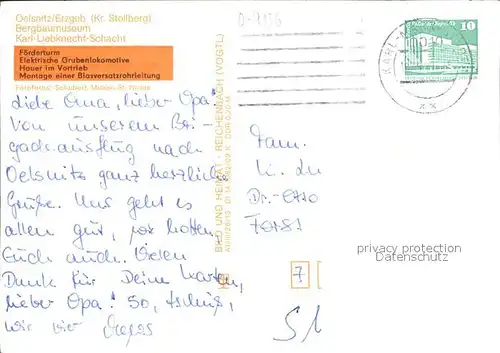 Oelsnitz/Erzgeb. (Kr. Stollberg)
Bergbaumuseum
Karl-Liebknecht-Schacht
Förderturm
Elektrische Grubenlokomotive
Hauer im Vortrieb
Montage einer Blasversatzrohrleitung
Liebe Oma, lieber Opa!
Von unserem Bri-
gadeausflug nach
Oelsnitz ganz herzliche
Grüße. Uns geht es
allen gut, wir hoffen
Euch auch. Vielen
Dank für Deine Karten,
lieber Opa! So, tschüß,
wir vier
BILD UND HEIMAT · REICHENBACH (VOGTL)
D-9156
10
Fam.
Dr.-Otto
7
privacy protection
Datenschutz